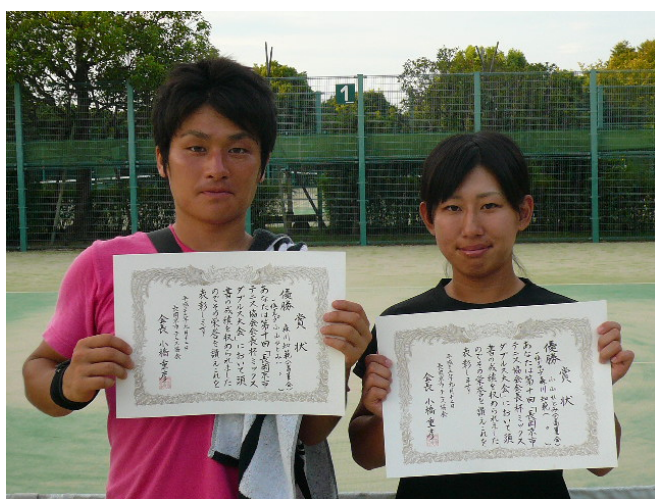 1
優勝
賞状
あなたは第十回「長岡京市
テニス協会会長杯ミックス
ダブルス大会」において頭
書の成績を収められました
のでその栄誉を讃えこれを
表彰します
会長 小橋
優勝
賞状
あなたは第十回「長岡京市
テニス協会会長杯ミックス
ダブルス大会」において頭
書の成績を収められました
のでその栄誉を讃えこれを
表彰します
会長 小橋